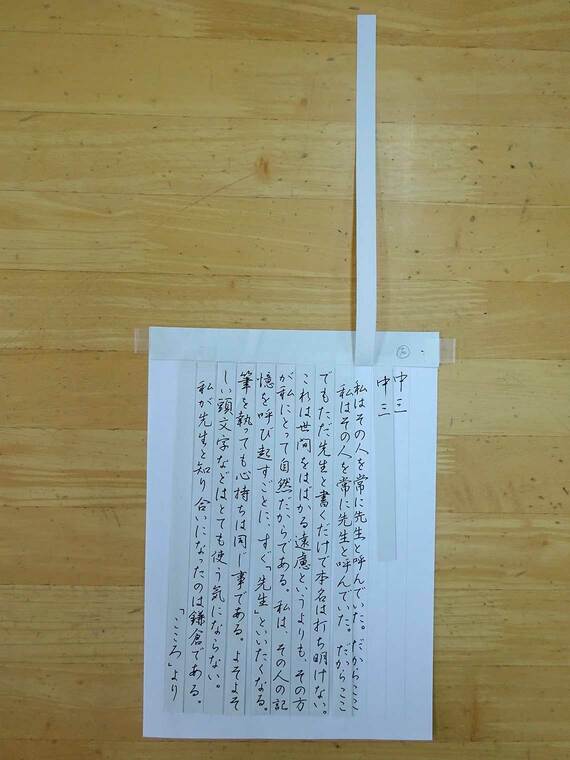 中三
中三
私はその人を常に先生と呼んでいた。だからここ
私はその人を常に先生と呼んでいた。だからここ
でもただ先生と書くだけで本名は打ち明けない。
これは世間をはばかる遠慮というよりも、その方
が私にとって自然だからである。私は、その人の記
憶を呼び起すごとに、すぐ「先生」といいたくなる。
筆を執っても心持ちは同じ事である。よそよそ
しい頭文字などはとても使う気にならない。
私が先生と知り合いになったのは鎌倉である。
「こころ」より